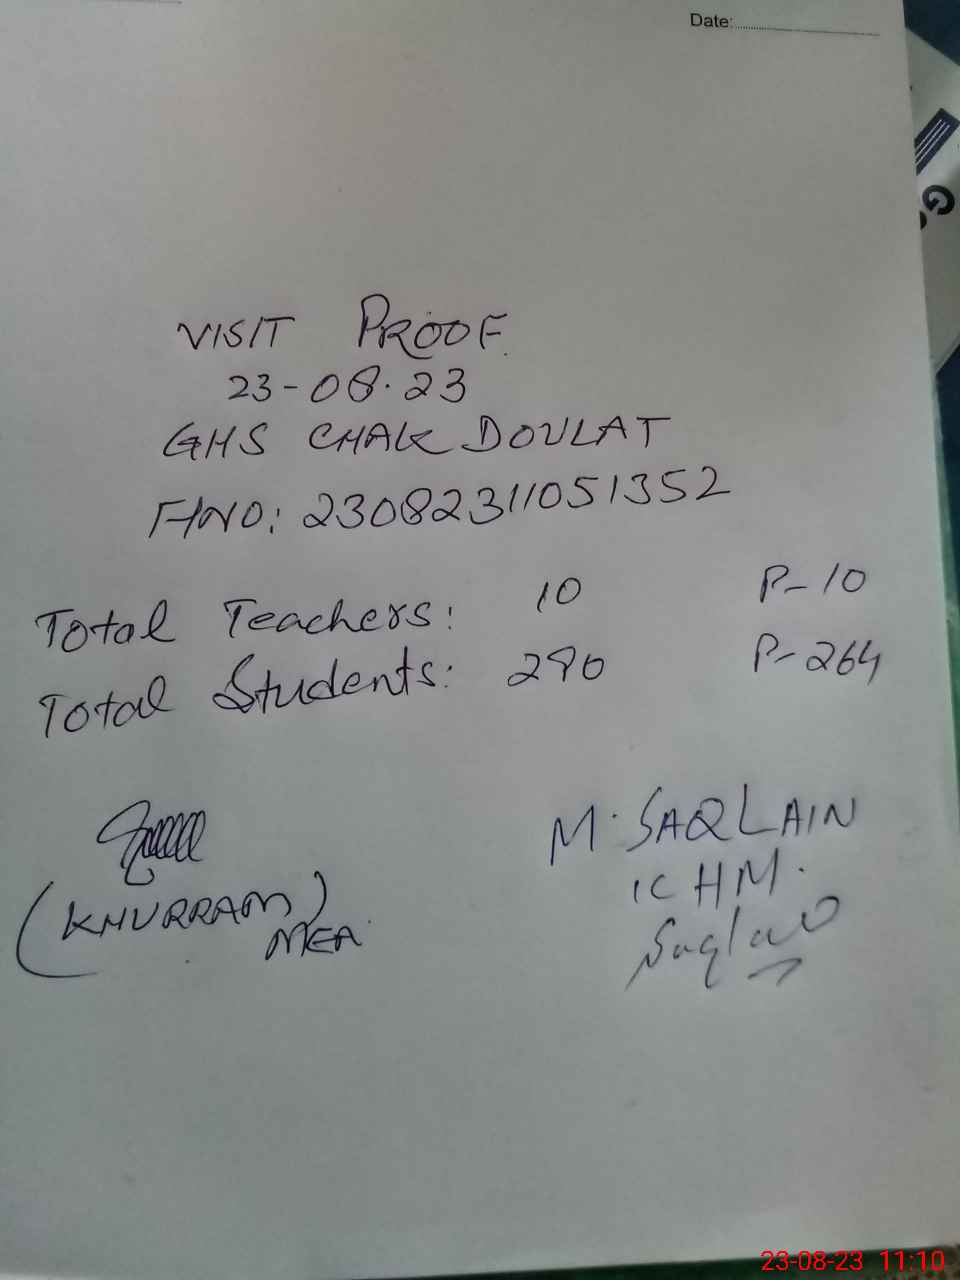 Date:
VISIT PROOF.
23-08.23
GHS CHAK DOULAT
F/NO: 23082311051352
Total Teachers: 10 P-10
Total Students: 290 P-264
(KHURRAM)
MEA
M. SAQLAIN
IC HM.
Saqlain
G
23-08-23 11:10